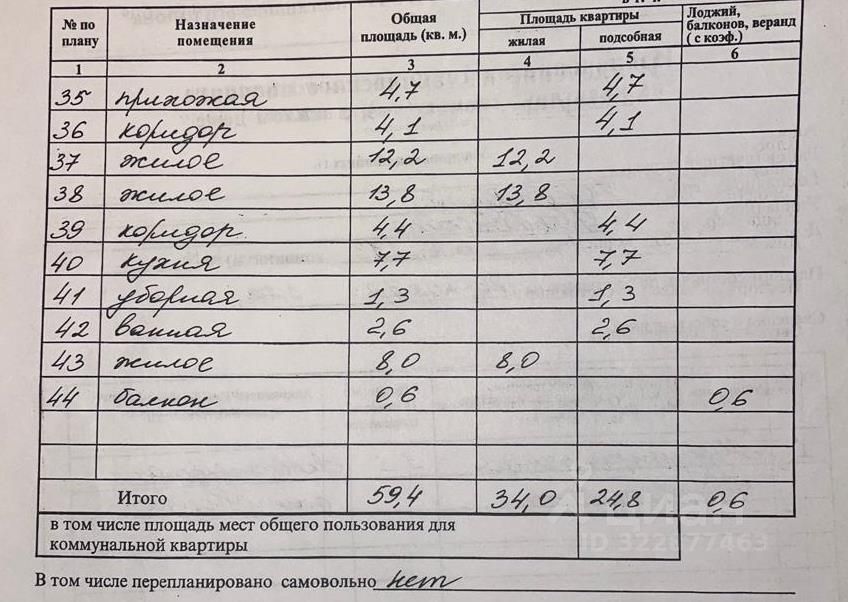 № по плану | Назначение помещения | Общая площадь (кв. м.) | Площадь квартиры | Лоджий, балконов, веранд ( с коэф.)
жилая | подсобная
1 | 2 | 3 | 4 | 5 | 6
35 | прихожая | 4,7 | | 4,7 |
36 | коридор | 4,1 | | 4,1 |
37 | жилое | 12,2 | 12,2 | |
38 | жилое | 13,8 | 13,8 | |
39 | коридор | 4,4 | | 4,4 |
40 | кухня | 7,7 | | 7,7 |
41 | уборная | 1,3 | | 1,3 |
42 | ванная | 2,6 | | 2,6 |
43 | жилое | 8,0 | 8,0 | |
44 | балкон | 0,6 | | | 0,6
Итого | 59,4 | 34,0 | 24,8 | 0,6
в том числе площадь мест общего пользования для
коммунальной квартиры
В том числе перепланировано самовольно нет
циан
ID 322677463